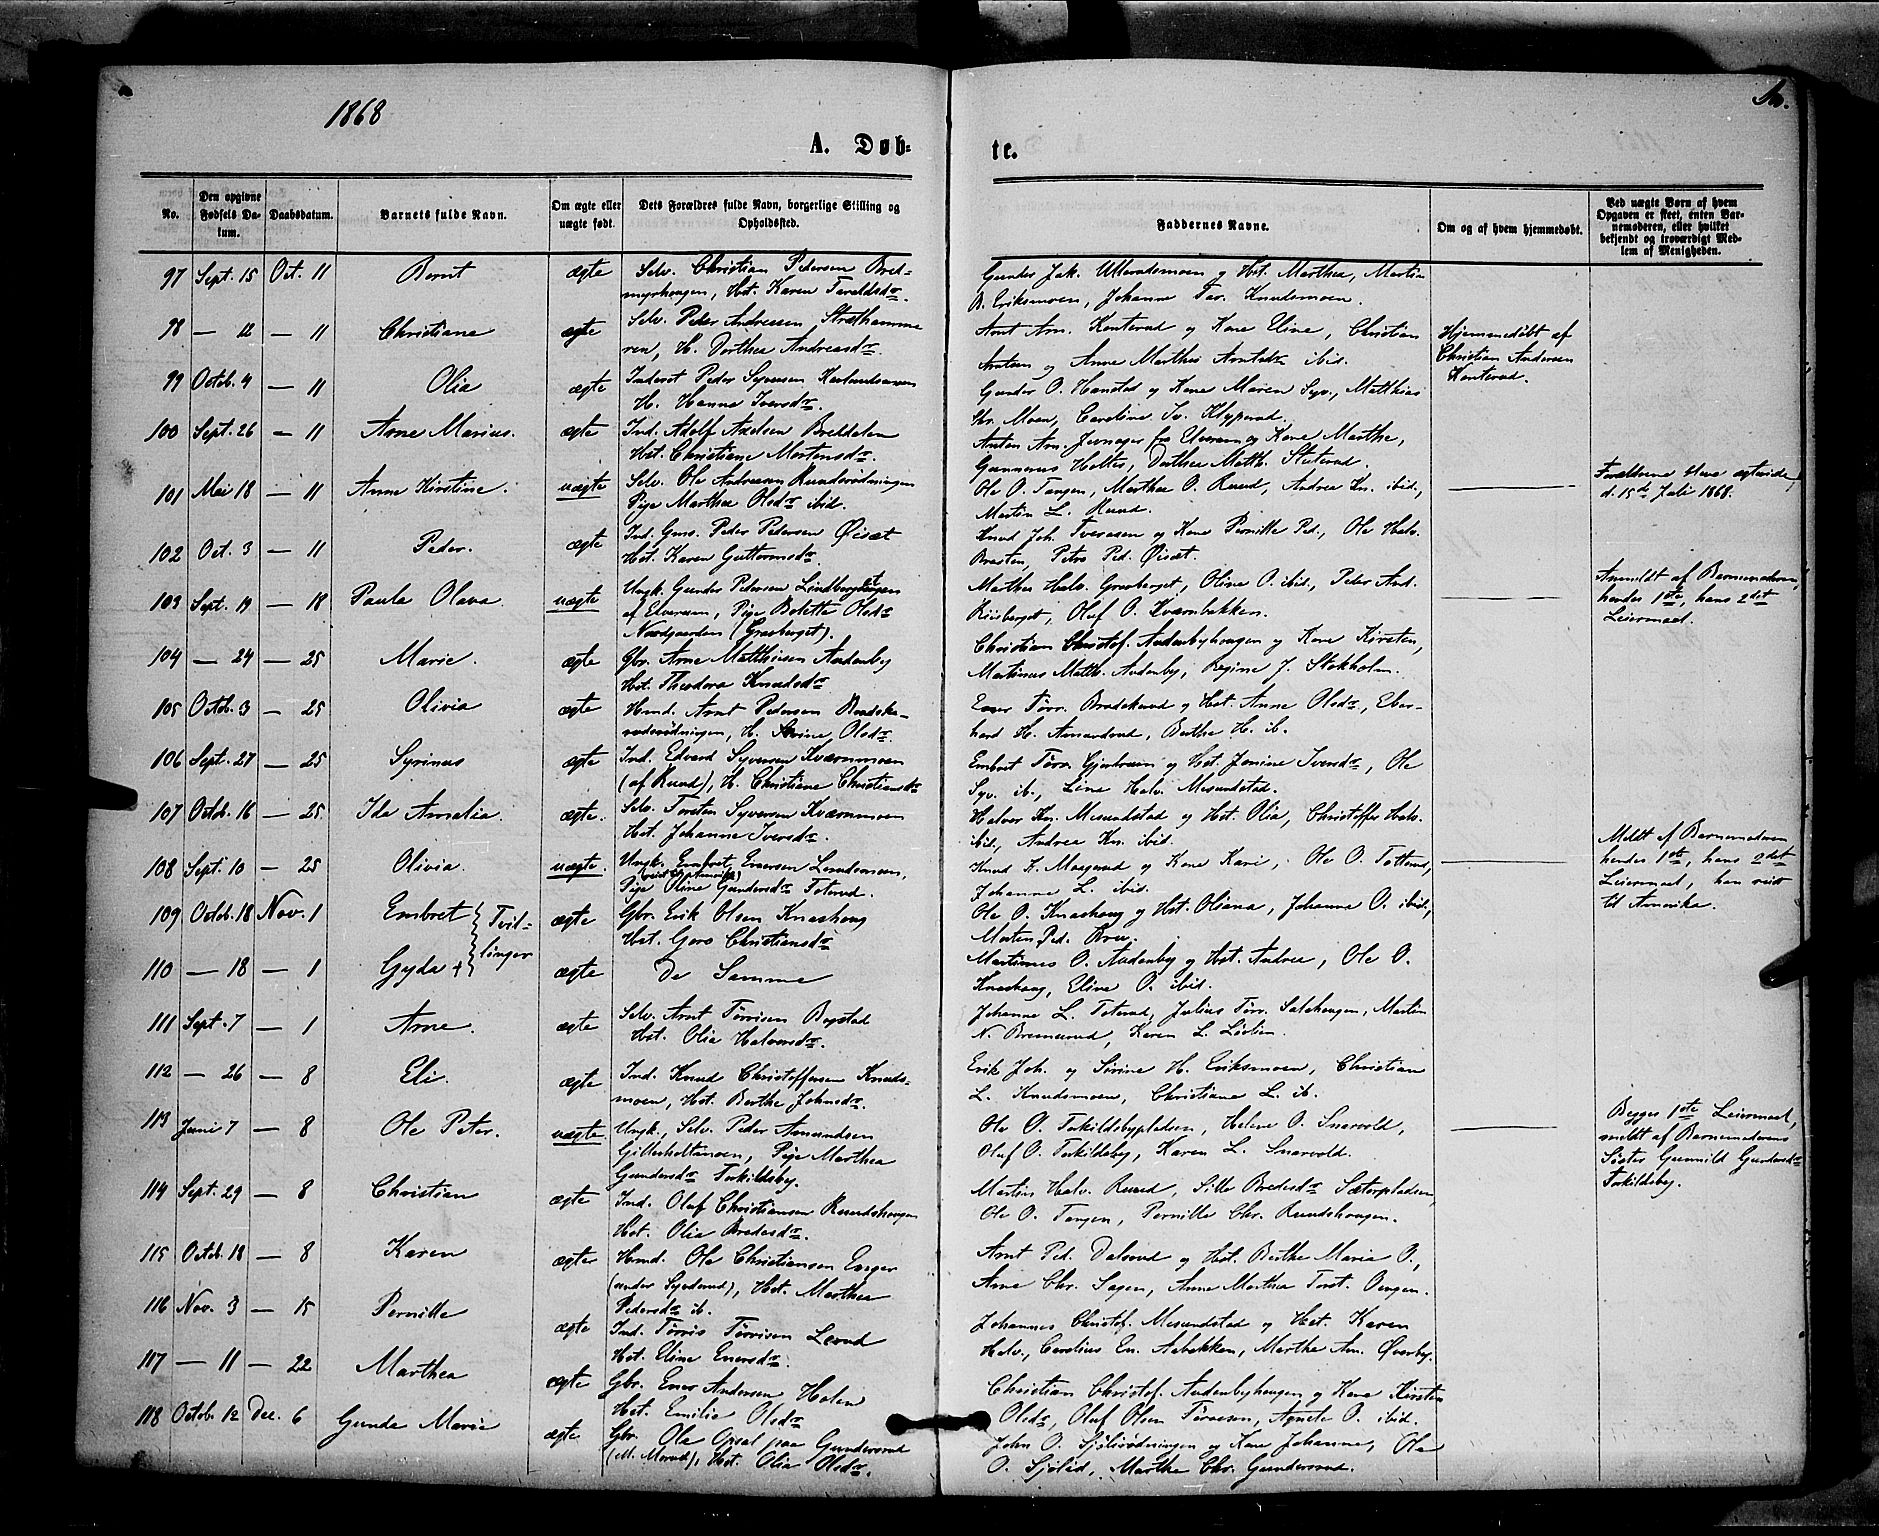 1868
A. Døb-
te.
No.
Den opgivne Fødsels Da-
tum.
Daabsdatum.
Barnets fulde Navn.
Om ægte eller
uægte født.
Dets Forældres fulde Navn, borgerlige Stilling og
Opholdssted.
Faddernes Navne.
Om og af hvem hjemmedøbt.
Ved uægte Børn af hvem
Opgaven er skeet, enten Bar-
nemoderen, eller hvilket
bekjendt og troværdigt Med-
lem af Menigheden.
97 Sept. 15 Oct. 11 Bernt ægte Selv. Christian Pedersen Bred-
myrhaugen, Hst. Karen Tareldsdr.
Gunder Jak. Ulleradsmoen og Hst. Marthea, Martin
B. Eriksmoen, Johanne Tar. Knudsmoen.
98 — 12 — 11 Christiane ægte Selv. Peder Andressen Stræthamme
ren, H. Dorthea Andreasdr.
Arnt Arn. Konterud og Kone Eline, Christian
og Anne Marthea Arntsdr ibid.
Hjemmedøbt af
Christian Andersen
Konterud.
99 Octob. 4 — 11 Olia ægte Inderst Peder Syversen
H. Hanna Iversdr.
Gunder O. Hanstad og Kone Maren Syv., Matthias
Chr. Moen, Caroline Iv. Klyperud.
100 Sept. 26 — 11 Arne Marius. ægte Ind. Adolf Axelsen Breddalen
Hst. Christiane Mortensdr.
Anton Arn. fra Elverum og Kone Marthe,
Gunnerus Holter, Dorthea Matth. Sluterud.
101 Mai 18 — 11 Anne Kirstine. uægte Selv. Ole Andreasen Rundsrødningen
Pige Marthea Olsdr ibid.
Ole O. Tangen, Marthea O. Ruud, Andrea Kn. ibid.,
Martin L. Ruud.
Forældrene bleve ægteviede
d. 15de Juli 1868.
102 Oct. 3 — 11 Peder. ægte Ind. Gms. Peder Pedersen Øisæt
Hst. Karen Guttormsdr.
Knud Joh. Tveraasen og Kone Pernille Ped., Ole Halv.
Braaten, Petra Ped. Øisæt.
103 Sept. 19 — 18 Paula Olava. uægte Ungk. Gunder Pedersen Lindbergstuen
af Elverum, Pige Bolette Olsdr
Nordgaarden (Grasberget).
Marthea Halv. Grasberget, Oline O. ibid., Peder And.
Riisberget, Oluf O. Kværnbakken.
Anmeldt af Barnemoderen,
hendes 1ste, hans 2det
Leiermaal.
104 — 24 — 25 Marie. ægte Gbr. Arne Matthisen Audenby
Hst. Theodora Knudsdr
Christian Christof. Audenbyhaugen og Kone Kirsten,
Martinus Matth. Audenby, Regine J. Stokholm.
105 Octob. 3 — 25 Olivia ægte Hmd. Arnt Pedersen Bradske-
rudsrødningen, H. Serine Olsdr.
Ener Tørr. Bradskerud og Hst. Anne Olsdr, Eber-
hard H. Amundrud, Berthe H. ib.
106 Sept. 27 — 25 Syrinus ægte Ind. Edvard Syversen Kværnmoen
(af Ruud), H. Christiane Christiansdr
Embret Tørr. og Hst. Jonine Iversdr, Ole
Syv. ib., Lina Halv. Mesundstad.
107 Octob. 16 — 25. Ida Amalia. ægte. Selv. Torsten Syversen Kværnmoen
Hst. Johanne Iversdr.
Halvor Kn. Mesundstad og Hst. Olia, Christoffer Halv.
ibid., Andrea Kn. ibid.
108 Sept. 10 — 25 Olivia. uægte. Ungk. Embret Enersen Lundsmoen,
Pige Oline Gundersdr Toterud.
Knud F. Maagerud og Kone Kari, Ole O. Totterud,
Johanne L. ibid.
Meldt af Barnemoderen
hendes 1ste, hans 2det
Leiermaal, han reist
til Amerika.
109 Octob. 18 Nov. 1 Embret } Tvil-
linger ægte Gbr. Erik Olsen Knashaug
Hst. Goro Christiansdr
Ole O. Knashaug og Hst. Oliana, Johanna O. ibid.,
Morten Ped. Bren.
110 — 18 — 1 Gyda + ægte De Samme
Martinus O. Audenby og Hst. Andrea, Ole O.
Knashaug, Eline O. ibid.
111 Sept. 7 — 1 Arne. ægte Selv. Arnt Tørrisen Bogstad
Hst. Olia Halvorsdr.
Johanne L. Toterud, Julius Tørr. Satshaugen, Martin
N. Bremerud, Karen L. Løvlien.
112 — 26 — 8 Eli. ægte Ind. Knud Christoffersen Knuds-
moen, Hst. Berthe Johnsdr.
Erik Joh. og Sørine H. Eriksmoen, Christian
L. Knudsmoen, Christiane L. ib.
113 Juni 7 — 8 Ole Peter. uægte. Ungk., Selv. Peder Amundsen
Gilderholttangen, Pige Marthea
Gundersdr Torkildsby.
Ole O. Torkildsbypladsen, Helene O. Snarvold,
Oluf O. Torkildsby, Karen L. Snarvold.
Begges 1ste Leiermaal,
meldt af Barnemoderens
Søster Gunnild Gundersdr
Torkildsby.
114 Sept. 29 — 8 Christian ægte Ind. Oluf Christiansen Ruudshaugen
Hst. Olia Bredesdr.
Martin Halv. Ruud, Sille Bredesdr Sæterpladsen,
Ole O. Tangen, Pernille Chr. Ruudshaugen.
115 Octob. 18 — 8 Karen ægter Hmd. Ole Christiansen Enger
(under Sjøderud), Hst. Marthea
Pedersdr ib.
Arnt Ped. Dalsrud og Hst. Berthe Maria O.,
Arne Chr. Sagen, Anne Marthea Torst. Oengen.
116 Nov. 3 — 15 Pernille ægte Ind. Tørris Tørrisen Lerud
Hst. Eline Enersdr.
Johannes Christof. Mesundstad og Hst. Karen
Halv., Carelius En. Aabakken, Marthe Arn. Øverby.
117 — 11 — 22 Marthea ægte Gbr. Ener Andersen Holen
Hst. Emilie Olsdr
Christian Christof. Audenbyhaugen og Kone Kirsten
Olsdr, Oluf Olsen Tørresen, Agnete O. ibid.
118 Octob. 12 Dec. 6 Gunda Marie ægte Gbr. Ole Opsal paa Gundersrud
(M. Morud), Hst. Olia Olsdr.
John O. Sjølirødningen og Kone Johanne, Ole
O. Sjølid, Marthe Chr. Gundersrud.